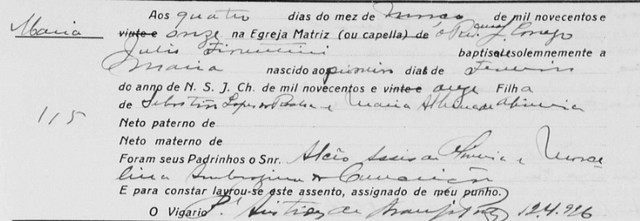 Maria
115
Aos quatro dias do mez de Março de mil novecentos e
vinte e onze na Egreja Matriz (ou capella) de o Rev. Conego
Julio Fiorentini baptisei solemnemente a
Maria nascido ao primeiro dia de Fevereiro
do anno de N. S. J. Ch. de mil novecentos e vinte e onze Filha
de Sebastião Lopes de e Maria
Neto paterno de
Neto materno de
Foram seus Padrinhos o Snr. Assis de Oliveira e
Ambrosina da Conceição
E para constar lavrou-se este assento, assignado de meu punho.
O Vigario P. Aristides de 124.926